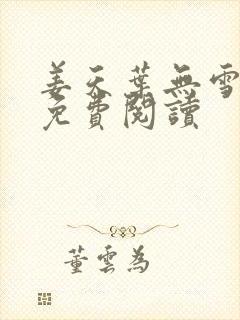 姜天葉無雪
免費閱讀
董雲為